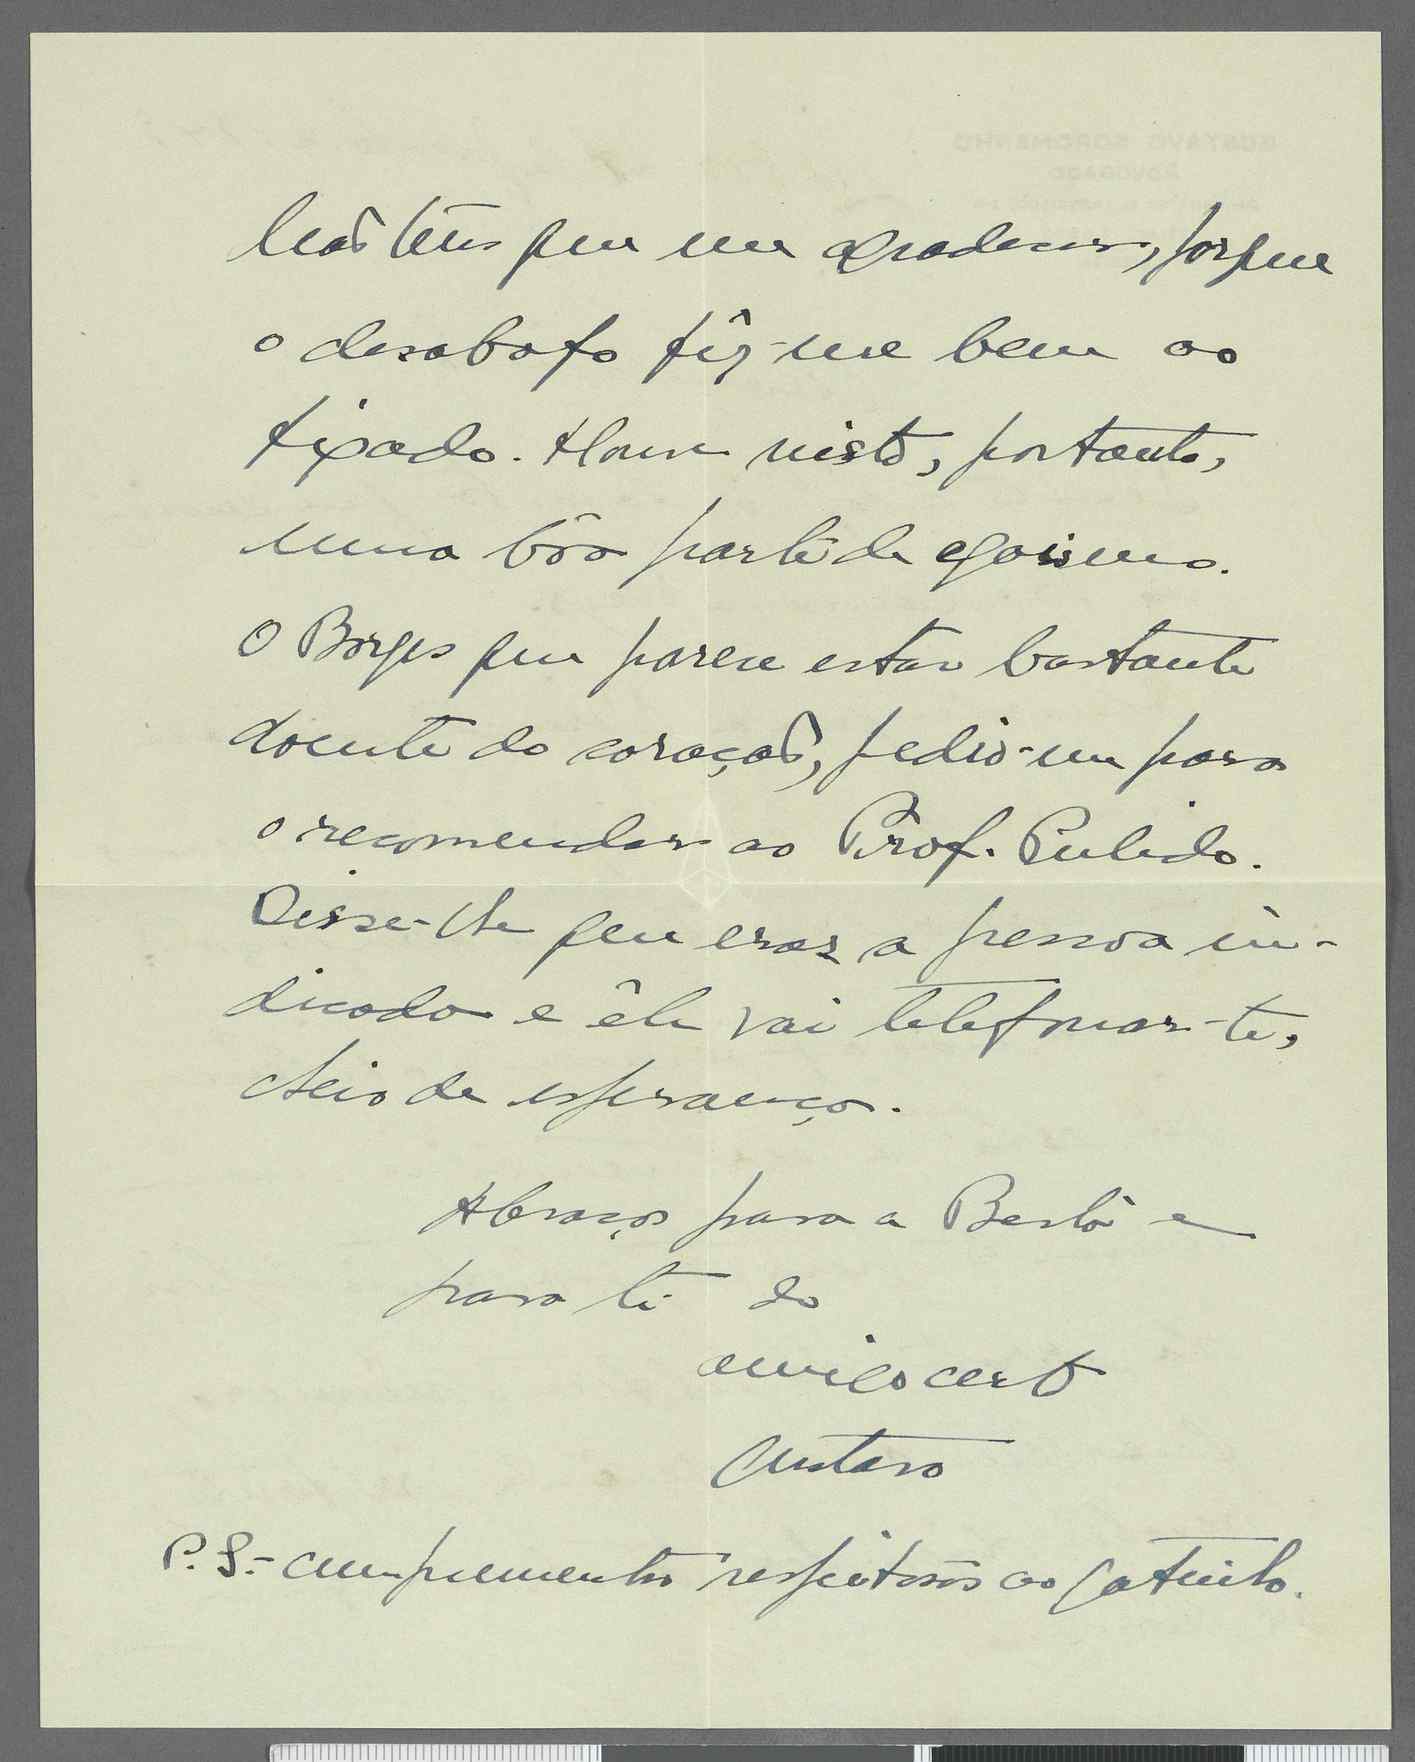 Não tens que me agradecer, porque
o desabafo fêz-me bem ao
fígado. Houve nisto, portanto,
uma bôa parte de egoismo.
O Borges que parece estar bastante
doente do coração, pediu-me para
o recomendar ao Prof. Pulido.
Disse-lhe que eras a pessoa in-
dicada e êle vai telefonar-te,
cheio de esperança.
Abraços para a Berta e
para ti do
amigo certo
Gustavo
P.S.- cumprimentos respeitosos ao gatinho.
GUSTAVO SOROMENHO
ADVOGADO